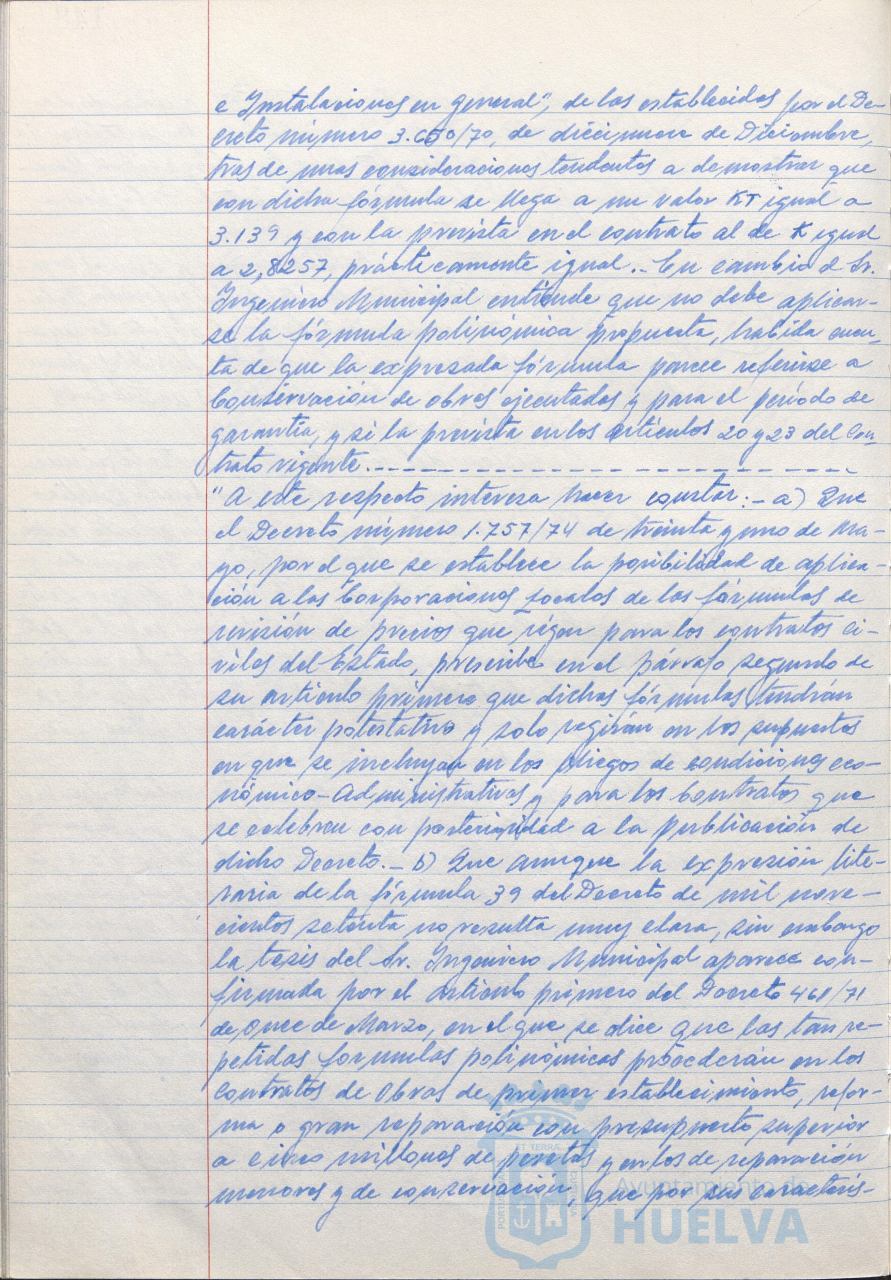 e Instalaciones en general", de las establecidas por el De-
creto número 3.650/70, de diecinueve de Diciembre,
tras de unas consideraciones tendentes a demostrar que
con dicha fórmula se llega a un valor KT igual a
3.139 y con la prevista en el contrato al de K igual
a 2,8257, prácticamente igual.- En cambio el Sr.
Ingeniero Municipal entiende que no debe aplicar-
se la fórmula polinómica propuesta, habida cuen-
ta de que la expresada fórmula parece referirse a
Conservación de obras ejecutadas y para el período de
garantía, y si la prevista en los artículos 20 y 23 del Con-
trato vigente.-
"A este respecto interesa hacer constar:- a) Que
el Decreto número 1.757/74 de treinta y uno de Ma-
yo, por el que se establece la posibilidad de aplica-
ción a las Corporaciones Locales de las fórmulas de
revisión de precios que rigen para los contratos ci-
viles del Estado, prescribe en el párrafo segundo de
su artículo primero que dichas fórmulas tendrán
carácter potestativo y solo regirán en los supuestos
en que se incluyan en los pliegos de condiciones eco-
nómico-Administrativas y para los Contratos que
se celebren con posterioridad a la publicación de
dicho Decreto.- b) Que aunque la expresión lite-
raria de la fórmula 39 del Decreto de mil nove-
cientos setenta no resulta muy clara, sin embargo
la tesis del Sr. Ingeniero Municipal aparece con-
firmada por el artículo primero del Decreto 461/71
de Once de Marzo, en el que se dice que las tan re-
petidas formulas polinómicas procederán en los
Contratos de Obras de primer establecimiento, refor-
ma o gran reparación con presupuesto superior
a cinco millones de pesetas y en los de reparación
menores y de conservación, que por sus caracterís-
Ayuntamiento de
HUELVA